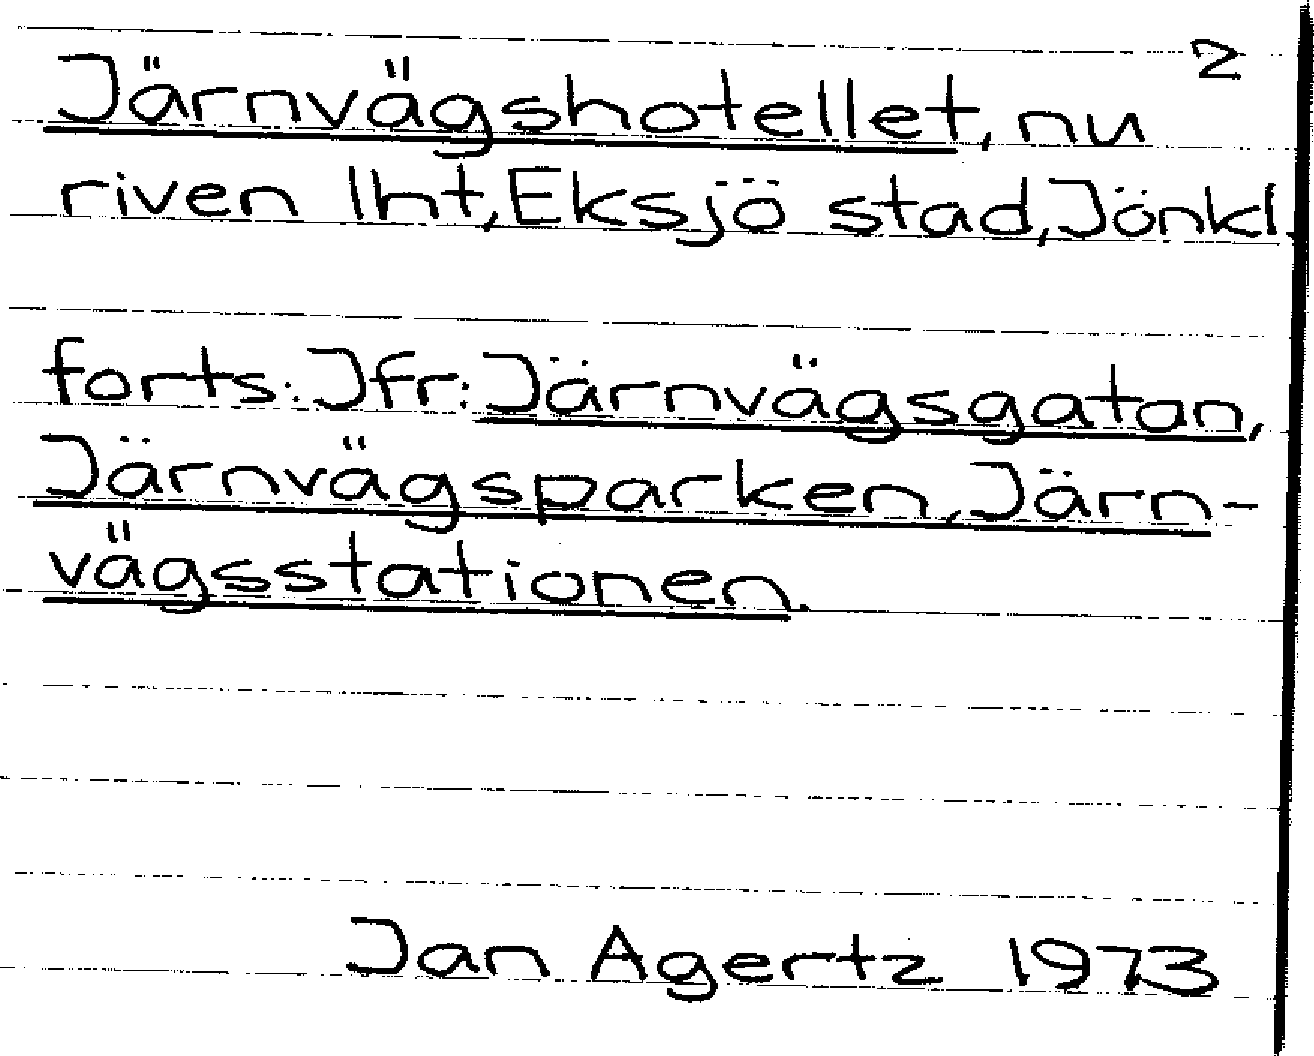 2
Järnvägshotellet, nu
riven lht, Eksjö stad, Jönkl.
forts. Jfr: Järnvägsgatan,
Järnvägsparken, Järn-
vägsstationen.
Jan Agertz 1973